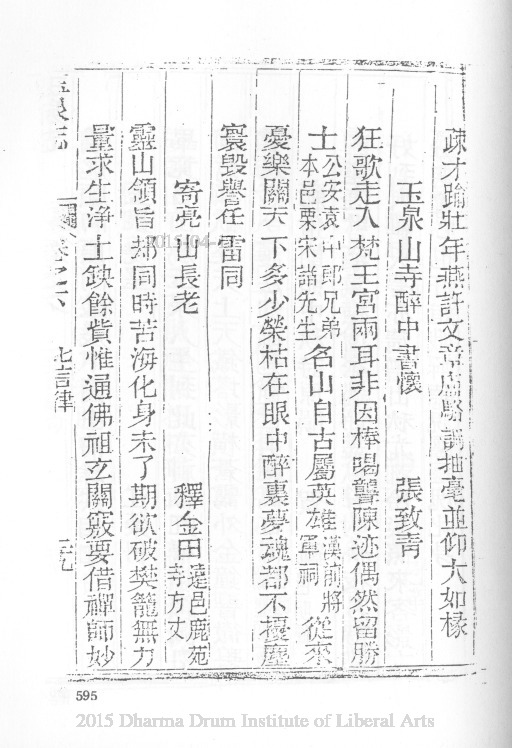 疎才踰壯年燕許文章盧駱調抽毫並仰大如椽
玉泉山寺醉中書懷 張致青
狂歌走入梵王宮兩耳非因棒喝聾陳迹偶然留勝
士公安袁中郎兄弟本邑栗宋諸先生名山自古屬英雄漢前將軍祠從來
憂樂關天下多少榮枯在眼中醉裏夢魂都不擾塵
寰毀譽任雷同
寄亮山長老 釋金田遠邑鹿苑寺方丈
靈山領旨却同時苦海化身未了期欲破樊籠無力
量求生淨土缺餘貲惟通佛祖立關竅要借禪師妙
泉志 卷之六 七言律
595
2015-04-
2015 Dharma Drum Institute of Liberal Arts